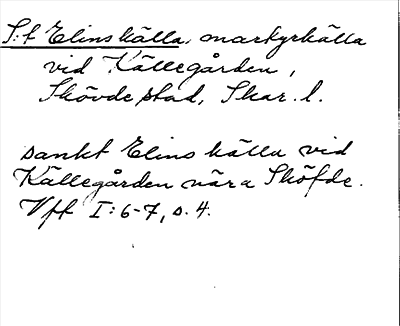 S:t Elins källa, markyrkälla
vid Källegården,
Skövde stad, Skar. l.
sankt Elins källa vid
Källegården nära Sköfde.
Vff I:6-7, s. 4.